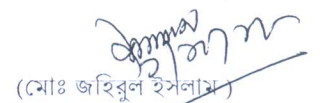 (মোঃ জহিরুল ইসলাম)